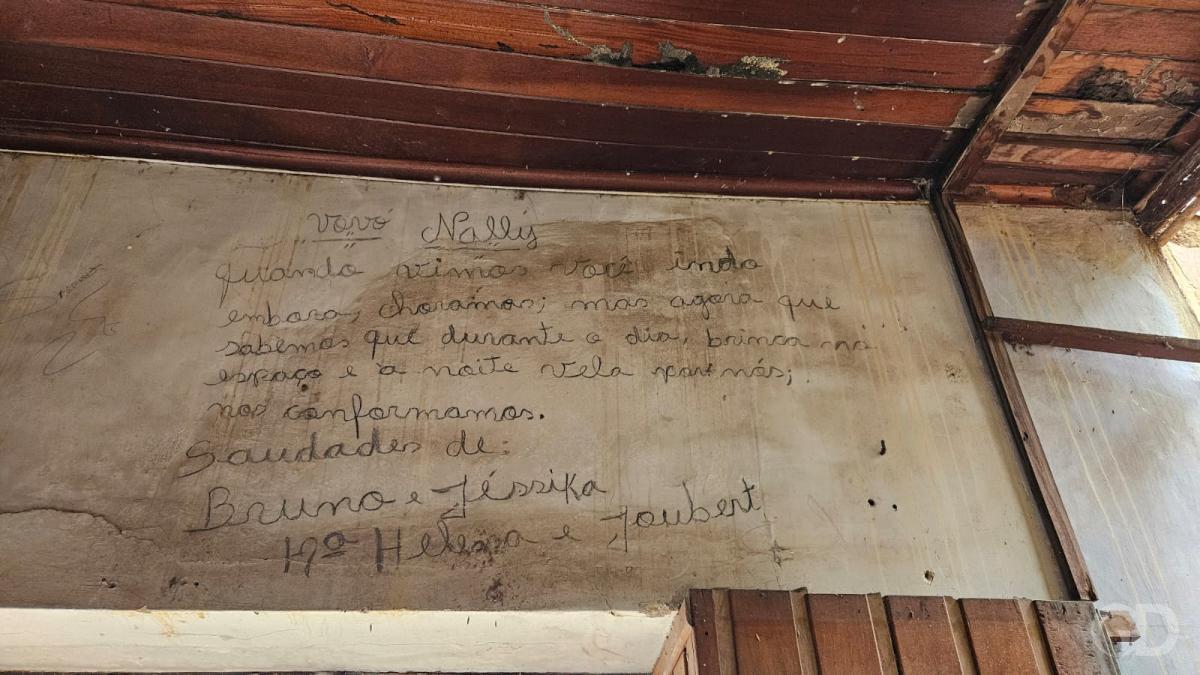 Vovó Nallys
quando vimos você indo
embora, choramos; mas agora que
sabemos que durante o dia, brinca no
espaço e a noite vela por nós;
nos conformamos.
Saudades de:
Bruno e Jéssika
Mª Helena e Joubert